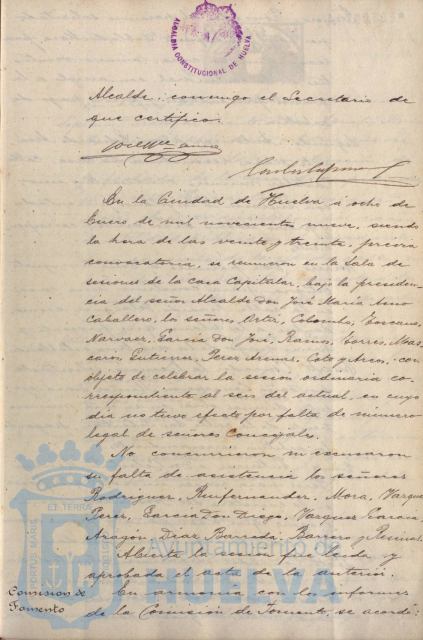 ALCALDIA CONSTITUCIONAL DE HUELVA
Alcalde, conmigo el Secretario de
que certifico.
En la Ciudad de Huelva á ocho de
Enero de mil novecientos nueve, siendo
la hora de las veinte y treinta, previa
convocatoria, se reunieron en la Sala de
sesiones de la Casa Capitular, bajo la presiden-
cia del señor Alcalde Don José María
Caballero, los señores Ortiz, Colombo, Toscano,
Narvaez, García Don José, Ramos, Torres, Mas-
caros, Gutierrez, Perez Coto y Arcos, con
objeto de celebrar la sesión ordinaria co-
rrespondiente al seis del actual, en cuyo
dia no tuvo efecto por falta de número
legal de señores Concejales.
No concurrieron ni excusaron
su falta de asistencia los señores
Rodriguez, Mora, Vazquez
Perez, García Don Diego, Vazquez García,
Aragón, Diaz Barreda, Barrero y
Abierta la sesión fué leida y
aprobada el acta de la anterior.
Comision de
Fomento
En armonía con los informes
de la Comisión de Fomento, se acordó:
PORTUS MARIS
ET TERRÆ
Ayuntamiento de
HUELVA